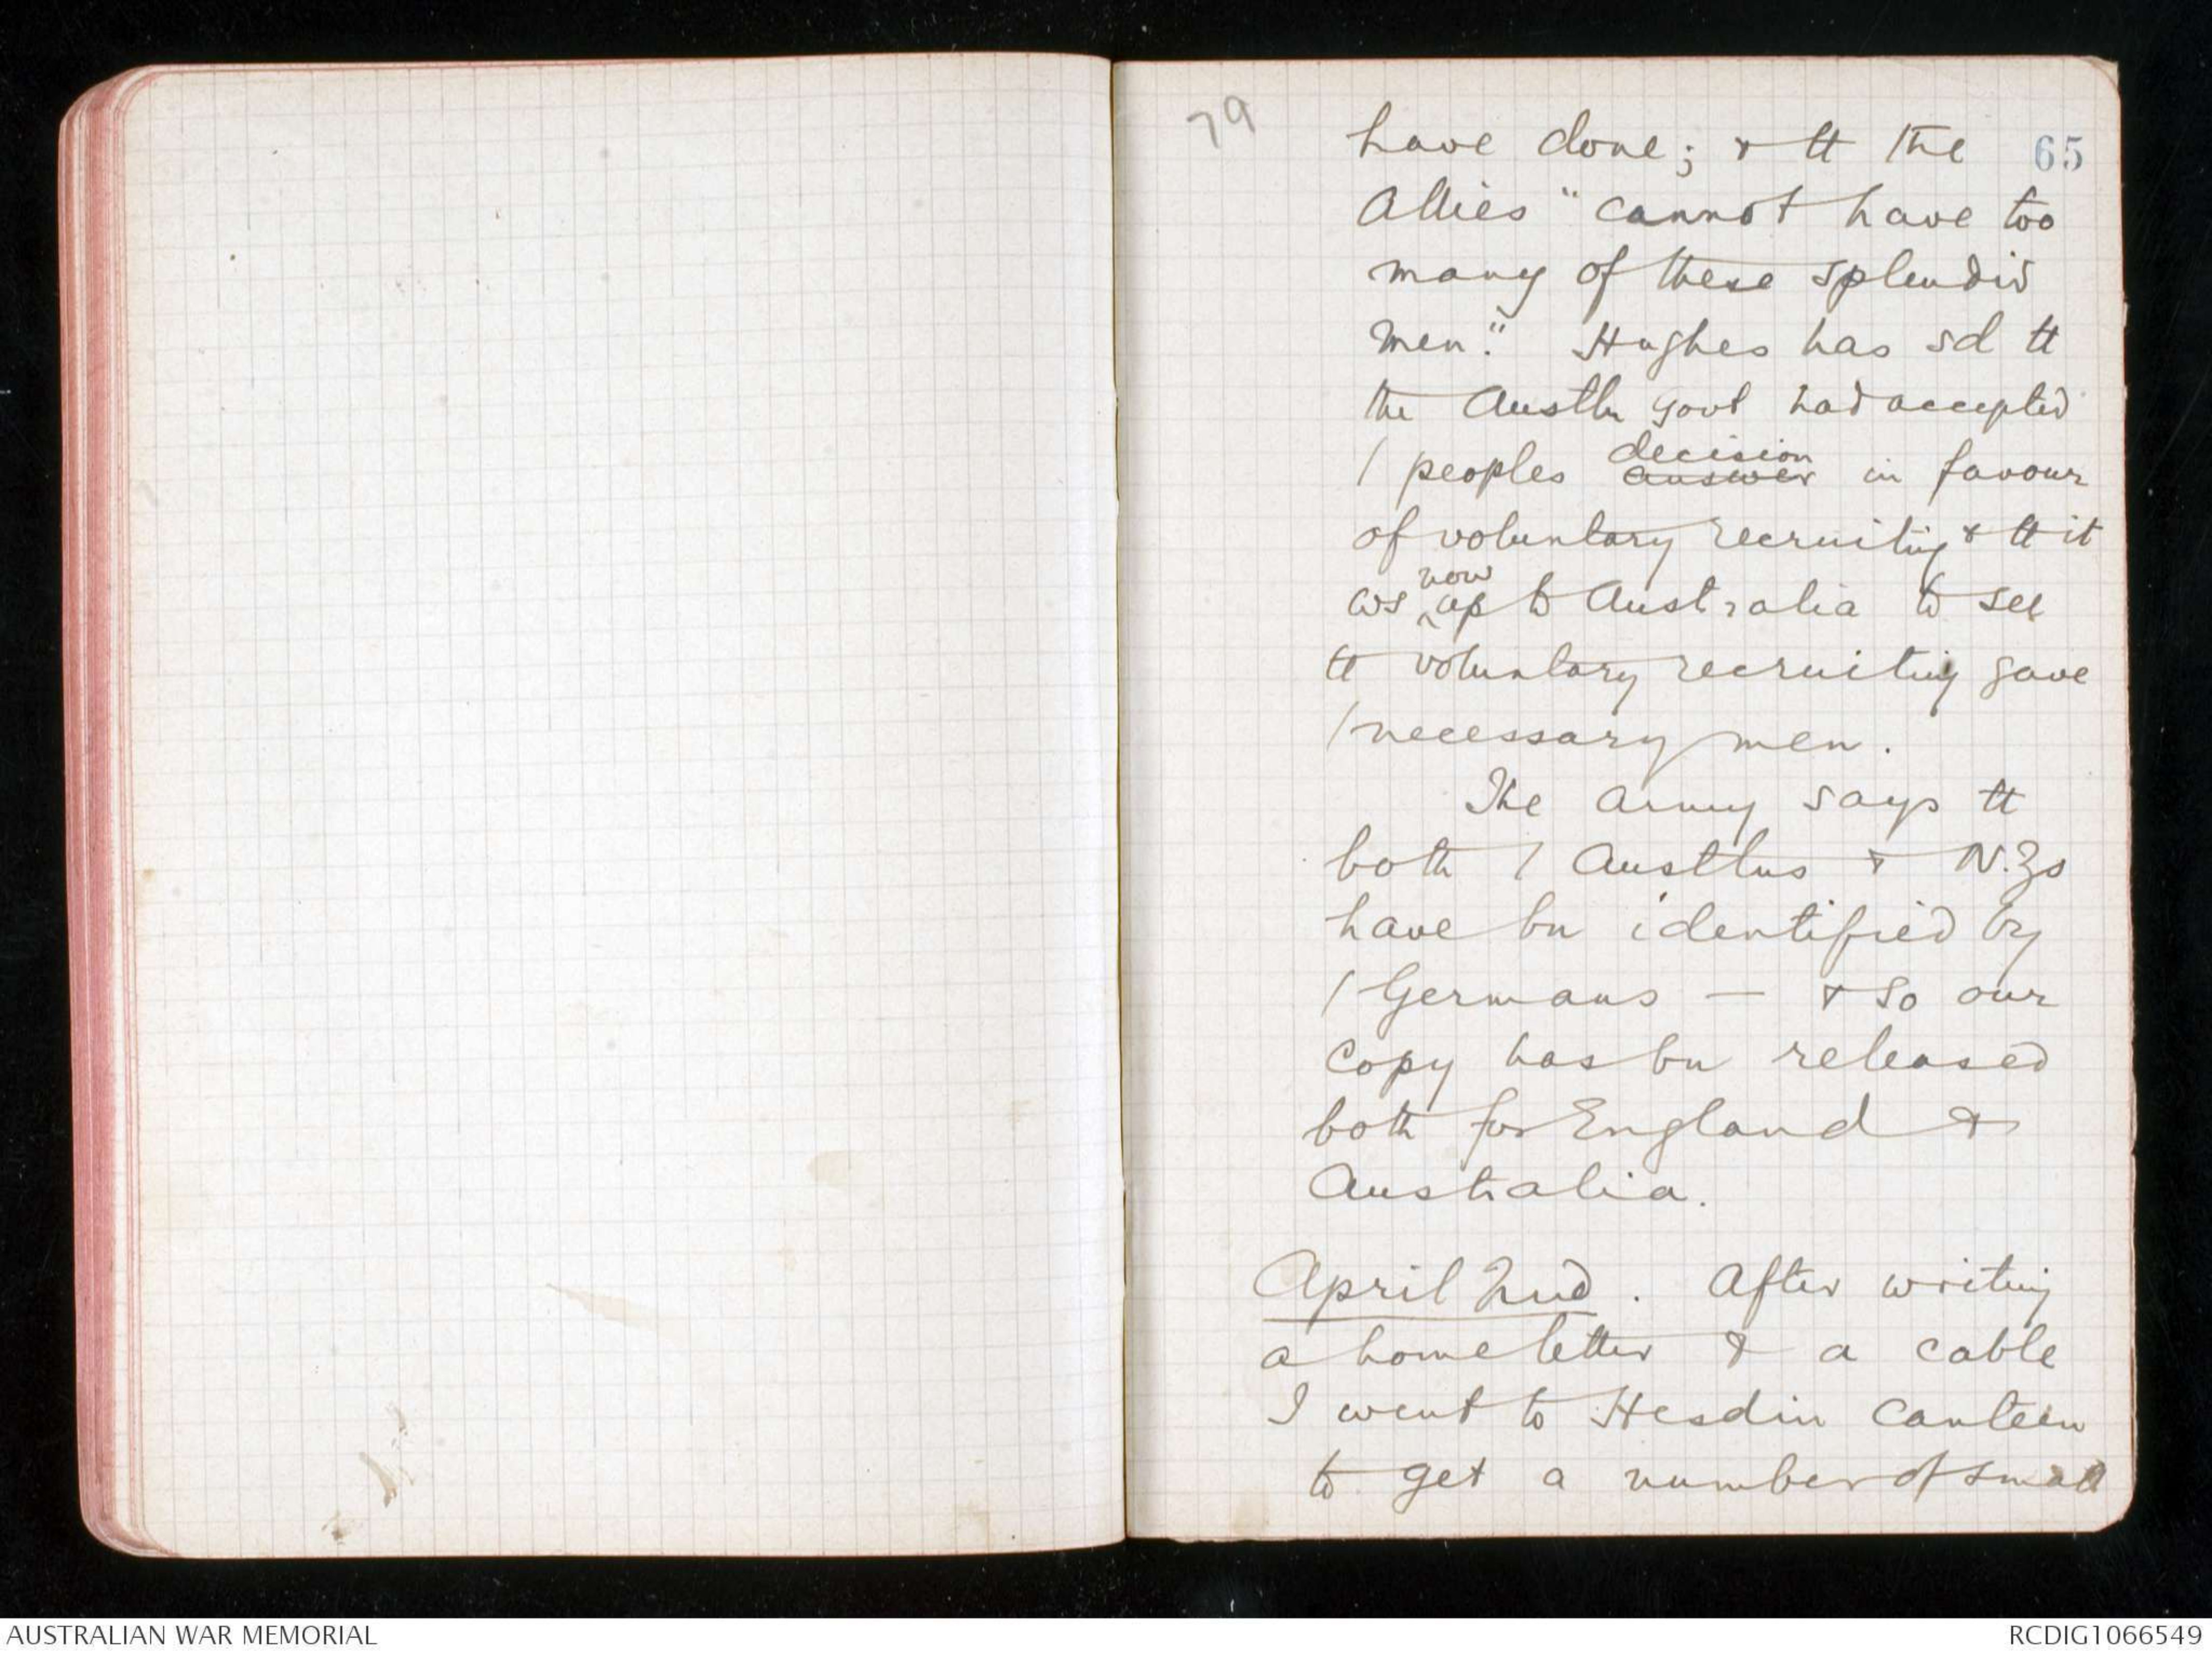 79
65
have done; & tt the
Allies "cannot have too
many of these splendid
men." Hughes has sd tt
the Austln govt had accepted
/ peoples decision answer in favour
of voluntary recruiting & tt it
ws now up to Australia to see
tt voluntary recruiting gave
/ necessary men.
The army says tt
both / Austlns & N.Zs
have bn identified by
/ Germans — & so our
copy has bn released
both for England &
Australia.
April 2nd. After writing
a home letter & a cable
I went to Hesdin canteen
to get a number of small
AUSTRALIAN WAR MEMORIAL
RCDIG1066549